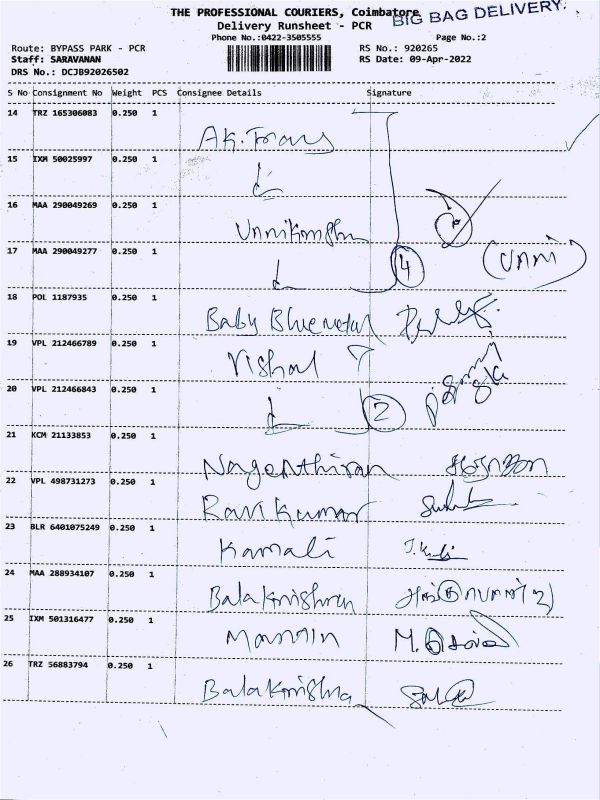 THE PROFESSIONAL COURIERS, Coimbatore
BIG BAG DELIVERY.
Delivery Runsheet - PCR
Phone No.:0422-3505555
Page No.:2
Route: BYPASS PARK - PCR
RS No.: 920265
Staff: SARAVANAN
RS Date: 09-Apr-2022
DRS No.: DCJB92026502
S No Consignment No Weight PCS Consignee Details Signature
14 TRZ 165306083 0.250 1
AK. Trans
15 IXM 50025997 0.250 1
16 MAA 290049269 0.250 1
17 MAA 290049277 0.250 1
4 (Unni)
18 POL 1187935 0.250 1
Baby
19 VPL 212466789 0.250 1
Vishal
20 VPL 212466843 0.250 1
2
21 KCM 21133853 0.250 1
Nagenthiran
22 VPL 498731273 0.250 1
Ravi Kumar
23 BLR 6401075249 0.250 1
Kamali
24 MAA 288934107 0.250 1
Balakrishnan
25 IXM 501316477 0.250 1
26 TRZ 56883794 0.250 1
Balakrishna